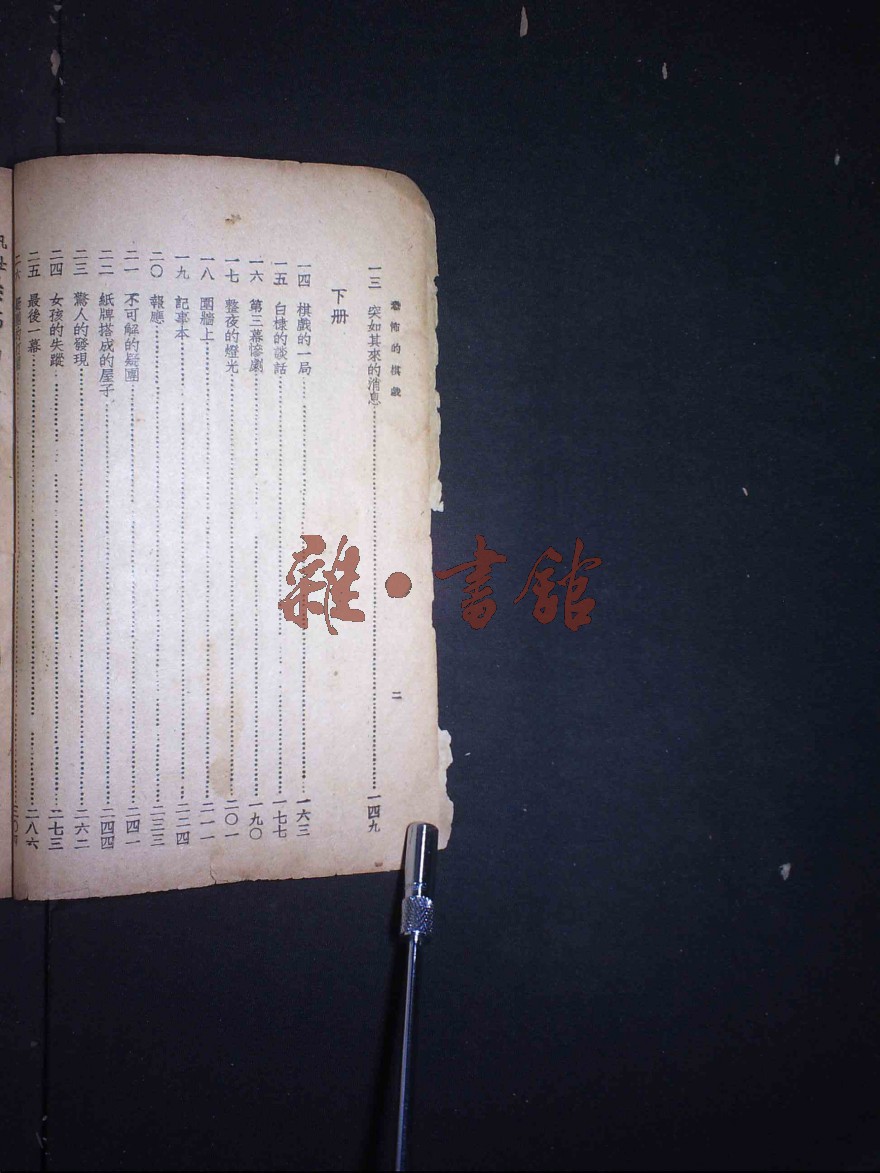 恐怖的棋戲
二
一三 突如其來的消息……一四九
下册
一四 棋戲的一局……一六三
一五 白棣的談話……一七七
一六 第三幕慘劇……一九〇
一七 整夜的燈光……二〇一
一八 圍牆上……二一一
一九 記事本……二二四
二〇 報應……二三三
二一 不可解的疑團……二四一
二二 紙牌搭成的屋子……二四四
二三 驚人的發現……二六二
二四 女孩的失蹤……二七三
二五 最後一幕……二八六
二六
雜·書館